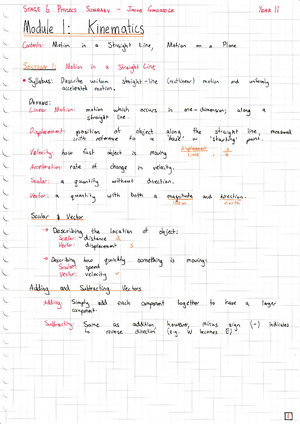 STAGE 6 PHYSICS SUMMARY - YEAR 11
Module 1: Kinematics
Contents: Motion in a Straight Line, Motion on a Plane
SECTION 1: Motion in a Straight Line
• Syllabus: Describe uniform straight-line (rectilinear) motion and uniformly
accelerated motion.
DEFINE:
Linear Motion: motion which occurs in one-dimension; along a
straight line.
Displacement: position of object along the straight line, measured
with reference to a 'base' or 'starting' point.
Velocity: how fast object is moving displacement / time
Acceleration: rate of change in velocity.
Scalar: a quantity without direction.
Vector: a quantity with both a magnitude and direction.
north
Scalar & Vector
→ Describing the location of object:
Scalar: distance d
Vector: displacement s
→ Describing how quickly something is moving:
Scalar: speed
Vector: velocity v
Adding and Subtracting Vectors
Adding: Simply add each component together to have a larger
component.
Subtracting: Same as addition, however, minus sign (-) indicates
to reverse direction (e.g. W becomes E)
1